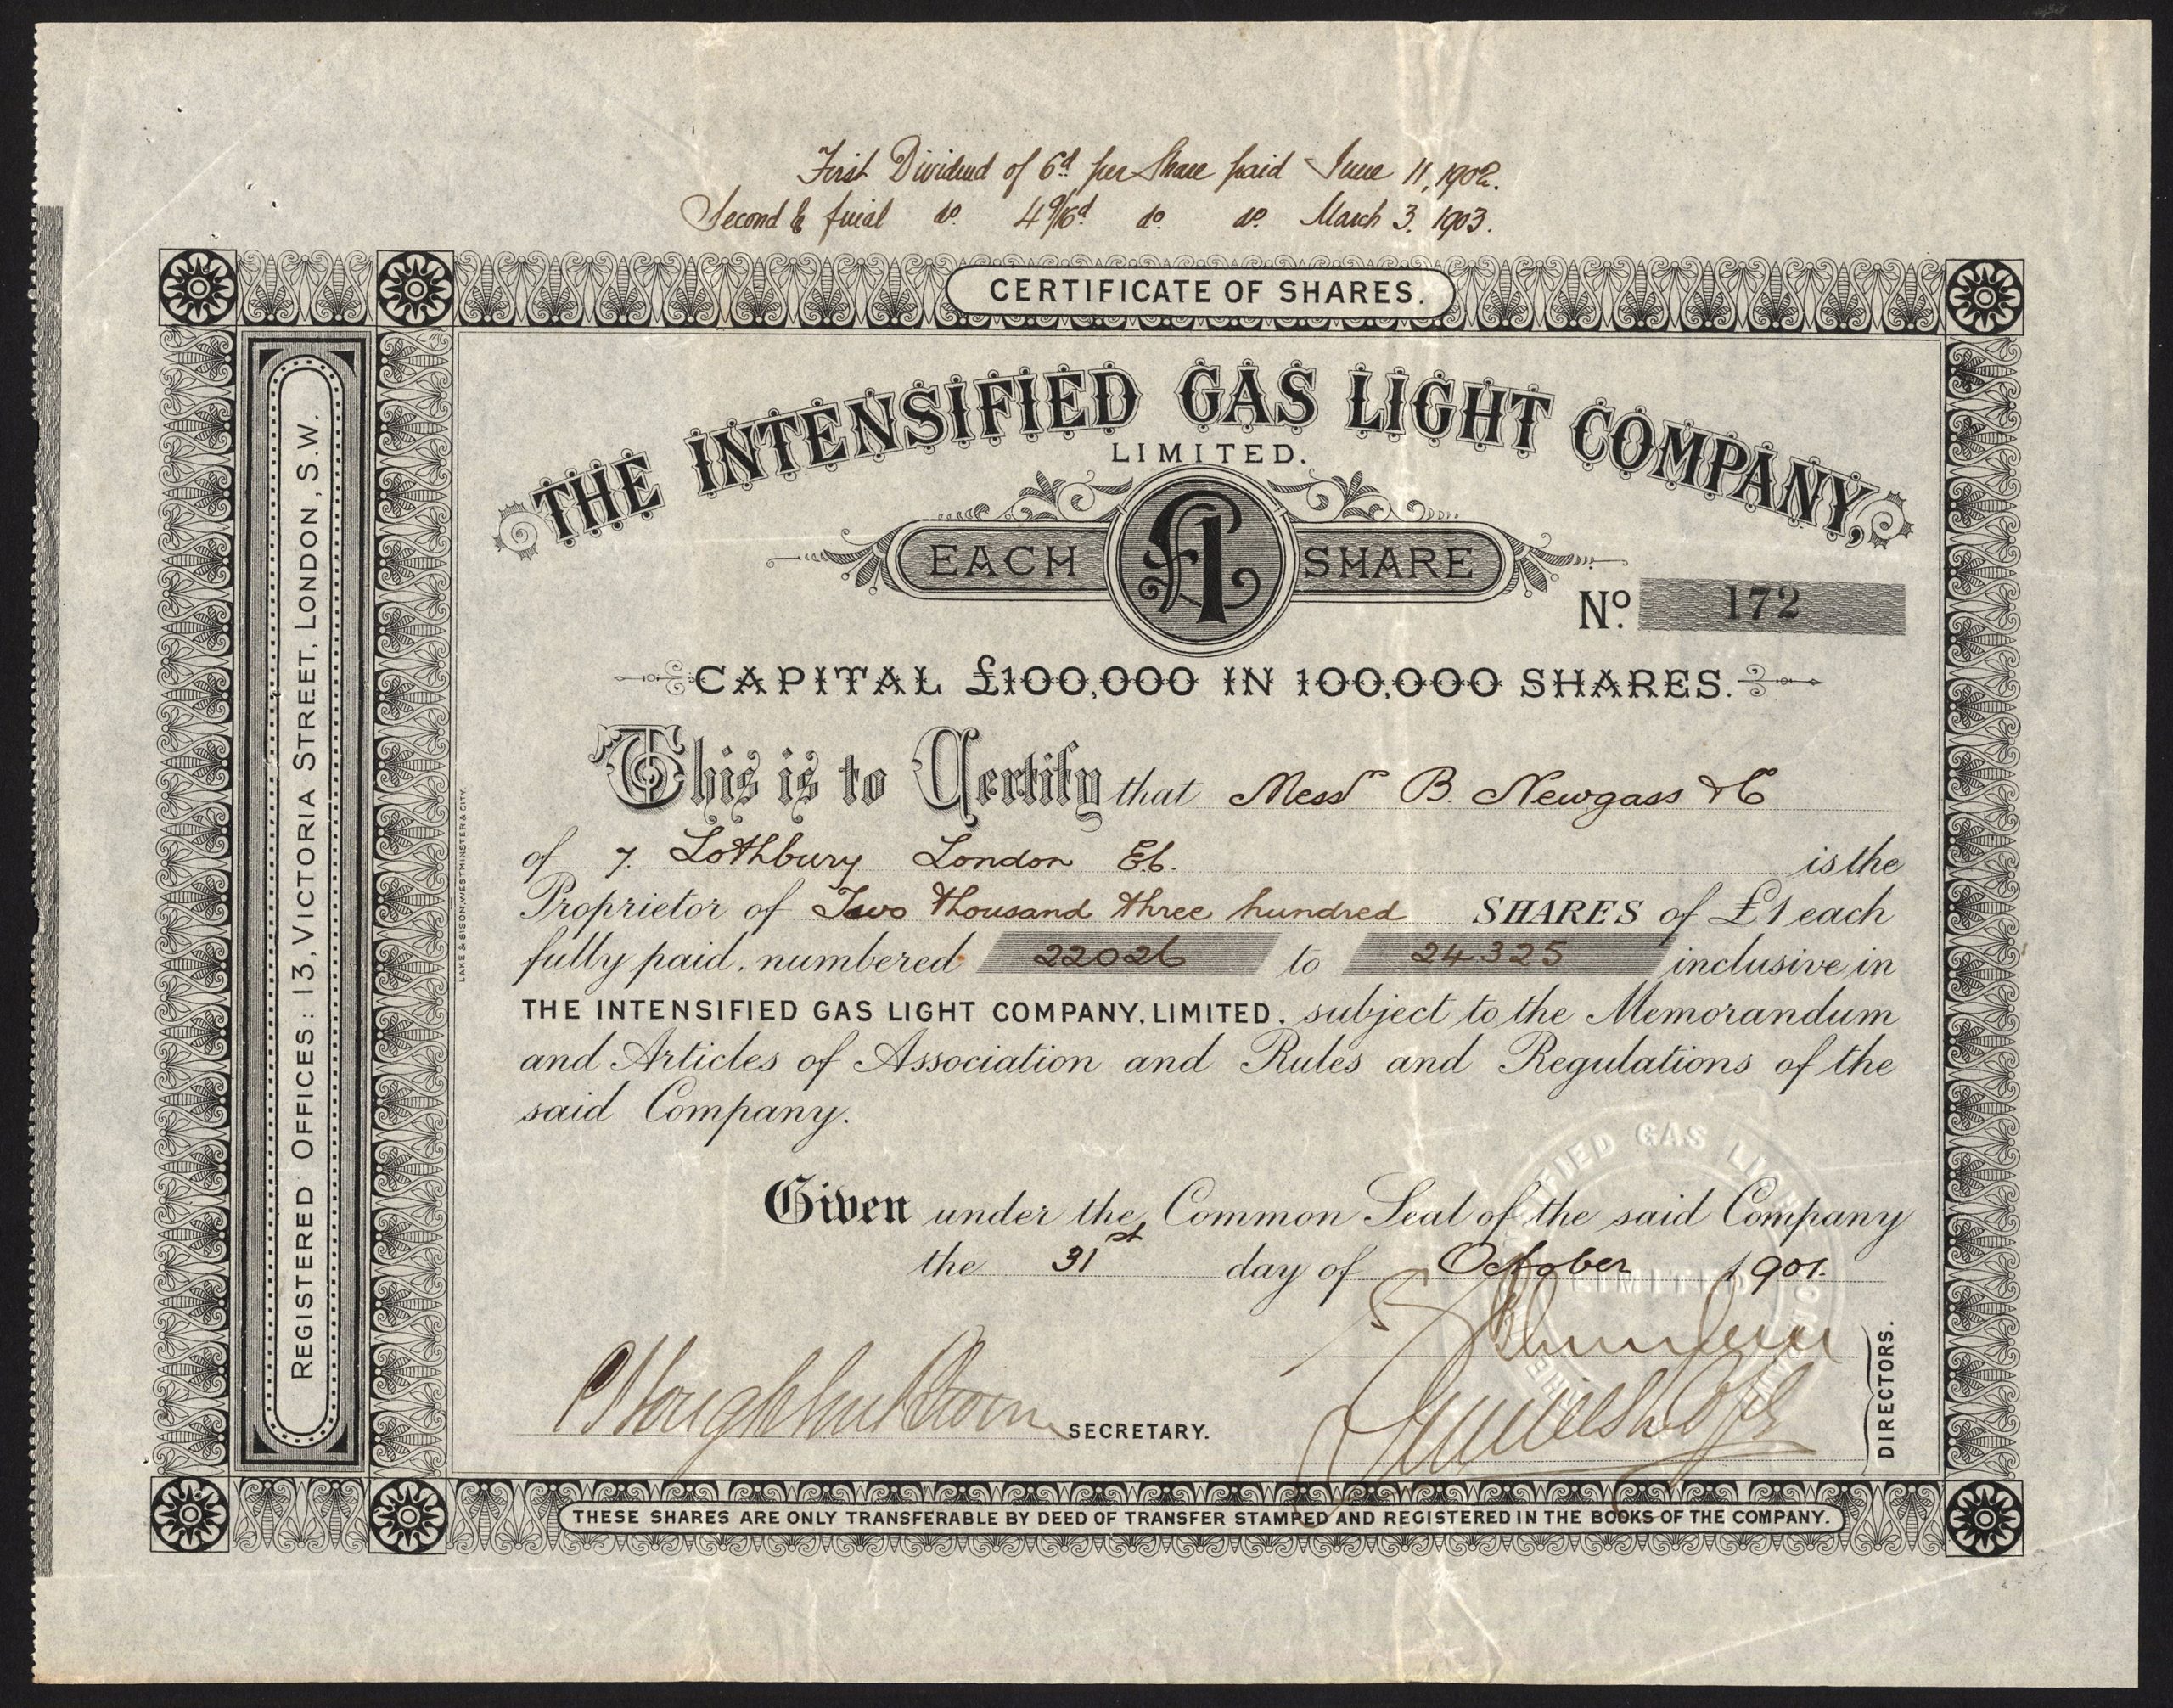 First Dividend of 6d per Share paid June 11, 1902.
Second & final do. 4 9/16d do. do. March 3. 1903.
CERTIFICATE OF SHARES.
THE INTENSIFIED GAS LIGHT COMPANY,
LIMITED.
EACH £1 SHARE
No. 172
CAPITAL £100,000 IN 100,000 SHARES.
This is to Certify that Messrs B. Newgass & Co
of 7. Lothbury London E.C. is the
Proprietor of Two thousand three hundred SHARES of £1 each
fully paid, numbered 22026 to 24325 inclusive in
THE INTENSIFIED GAS LIGHT COMPANY, LIMITED, subject to the Memorandum
and Articles of Association and Rules and Regulations of the
said Company.
Given under the Common Seal of the said Company
the 31st day of October 1901.
SECRETARY.
DIRECTORS.
THESE SHARES ARE ONLY TRANSFERABLE BY DEED OF TRANSFER STAMPED AND REGISTERED IN THE BOOKS OF THE COMPANY.
REGISTERED OFFICES: 13, VICTORIA STREET, LONDON, S.W.
LAKE & SISON, WESTMINSTER & CITY.
GAS LIGHT
LIMITED